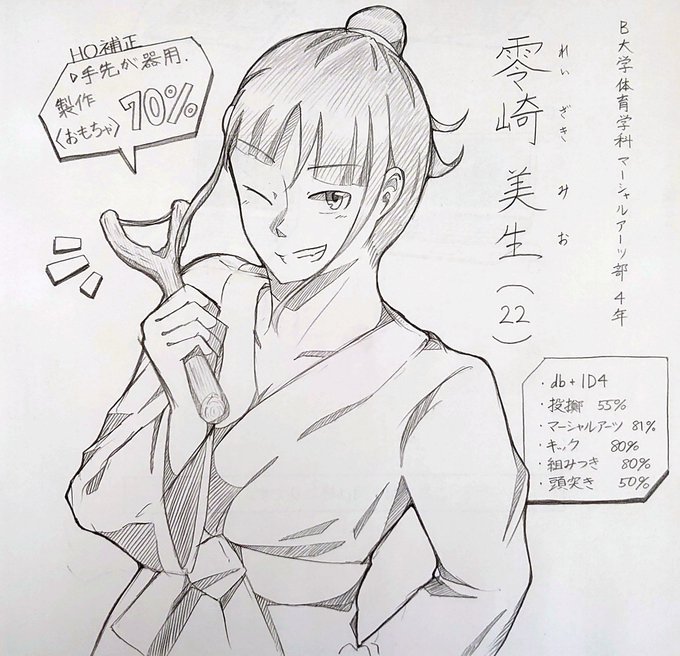 B大学体育学科マーシャルアーツ部4年
零崎 美生(22)
れいざき みお
HO補正
▷手先が器用.
製作
(おもちゃ)
70%
・db+1D4
・投擲 55%
・マーシャルアーツ 81%
・キック 80%
・組みつき 80%
・頭突き 50%